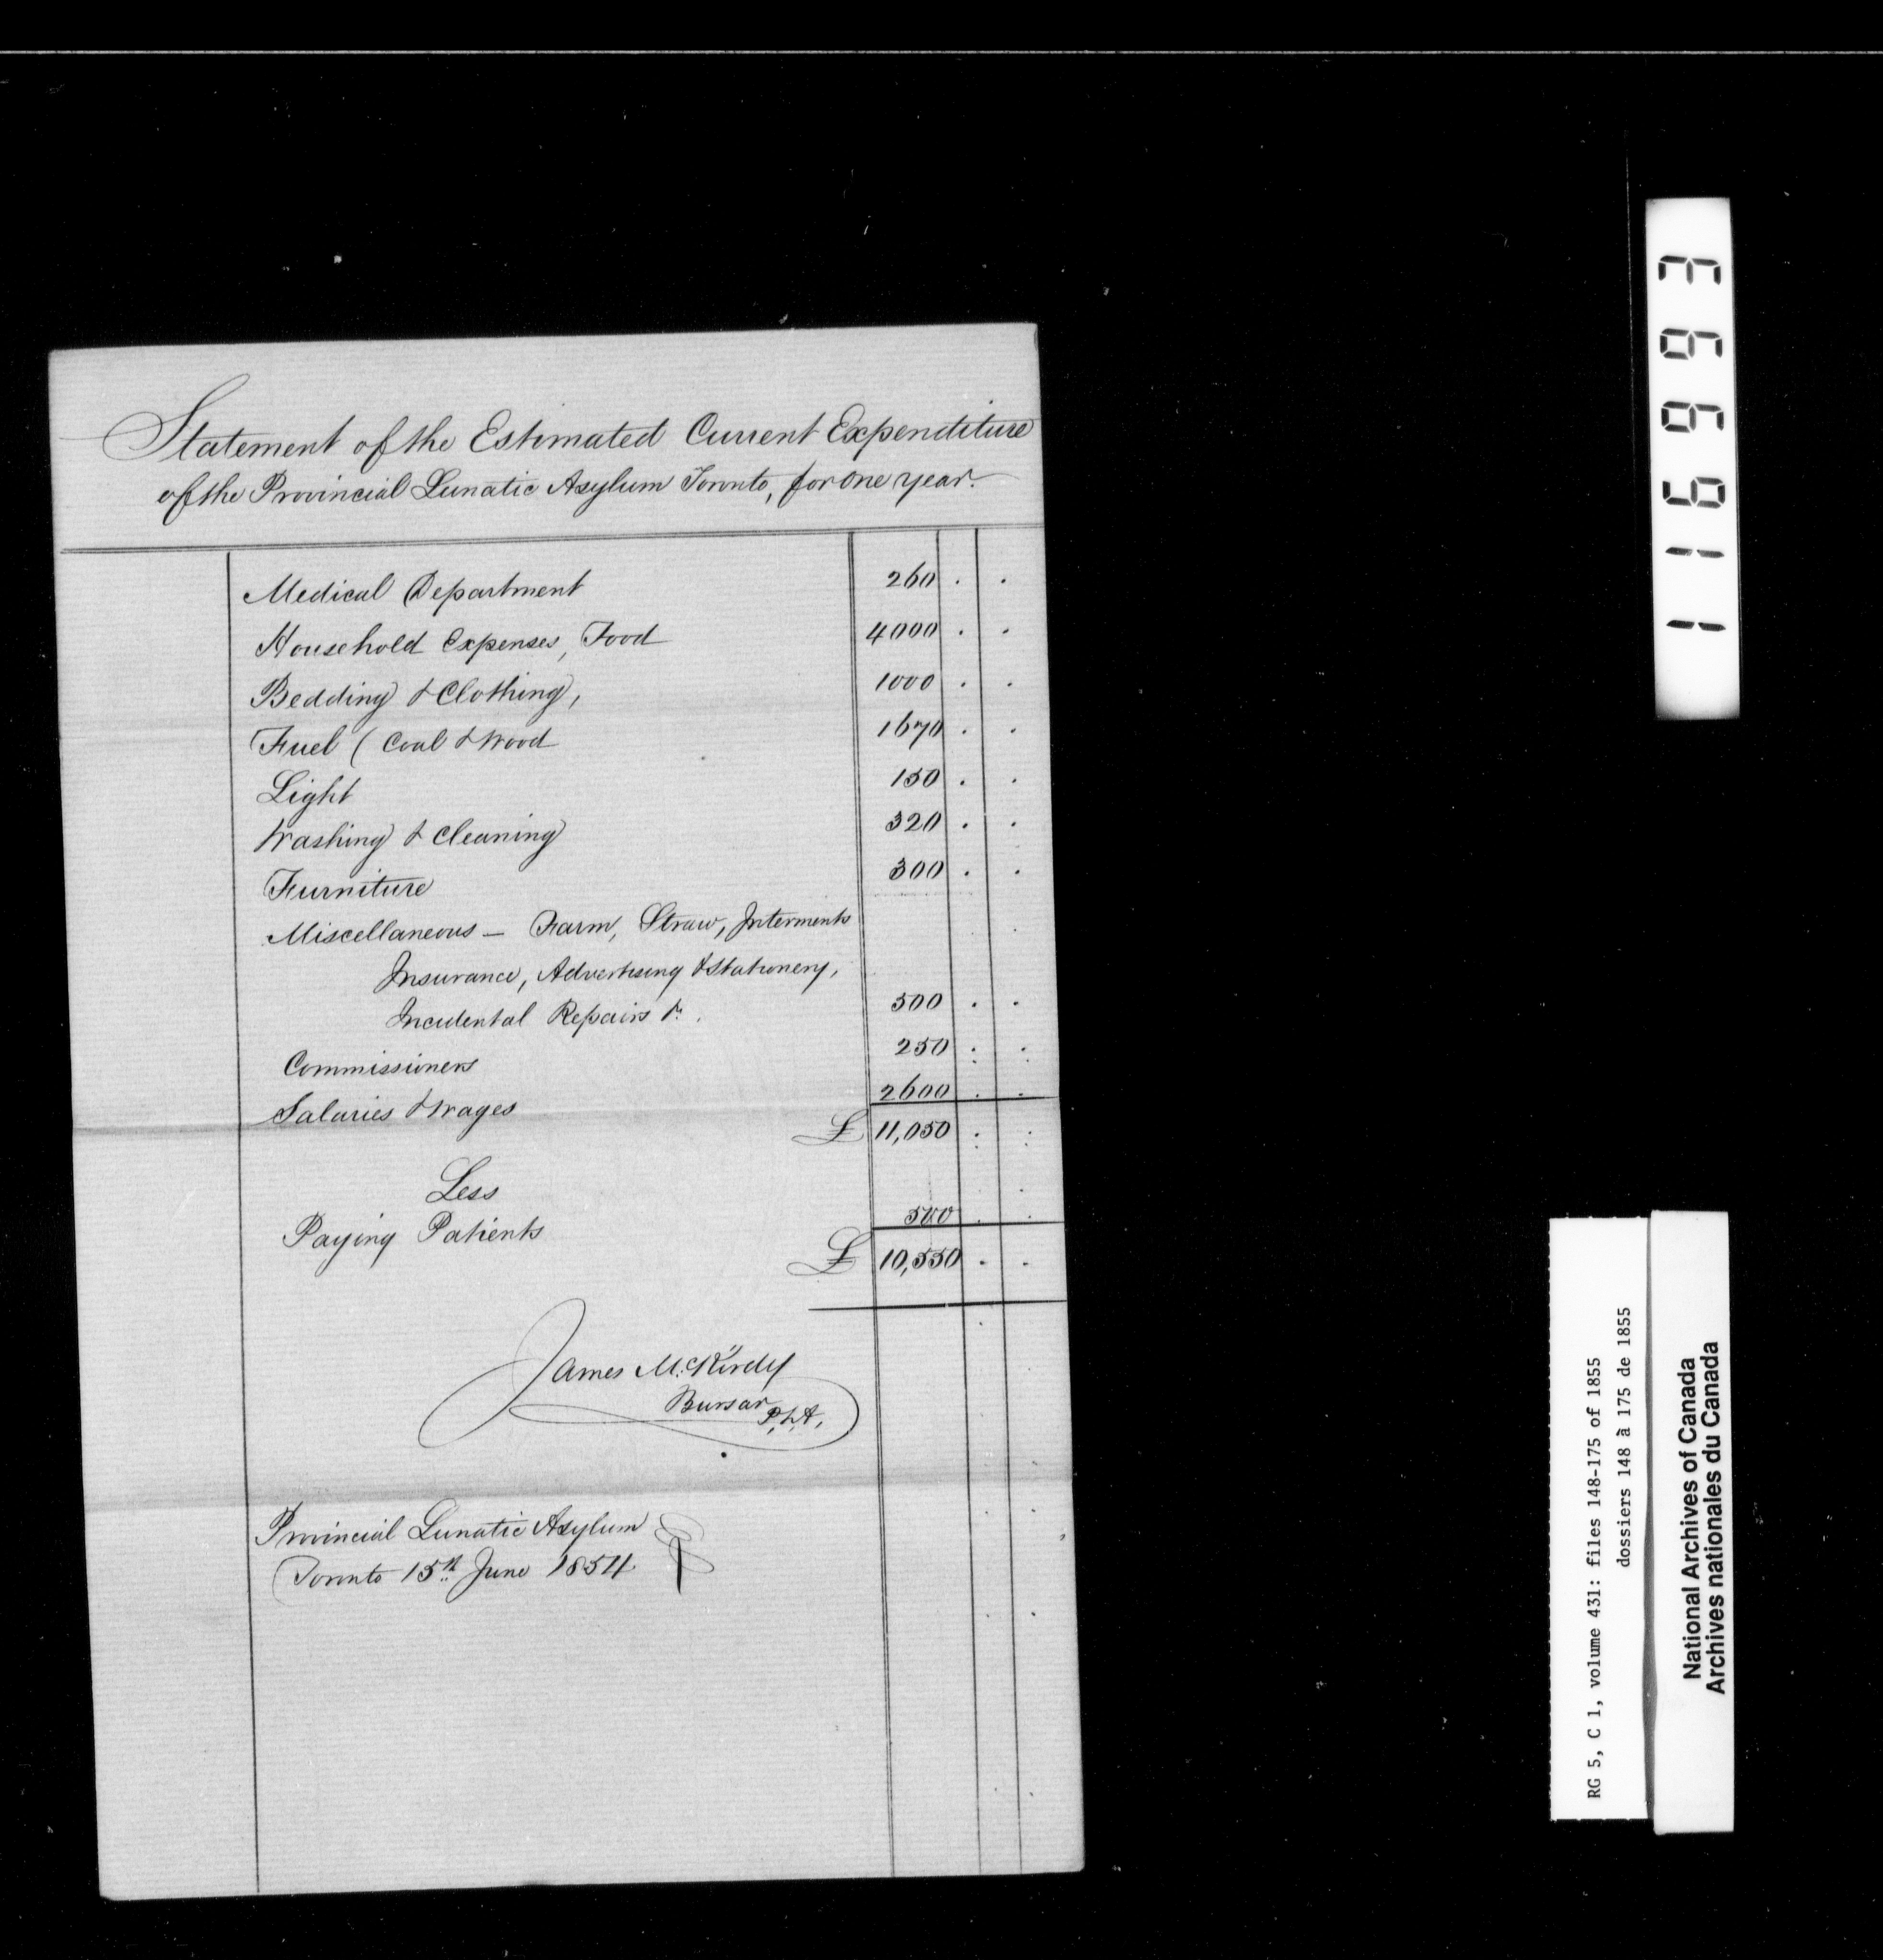 Statement of the Estimated Current Expenditure
of the Provincial Lunatic Asylum Toronto, for one year.
Medical Department 260 . .
Household Expenses, Food 4000 . .
Bedding & Clothing, 1000 . .
Fuel ( Coal & Wood 1670 . .
Light 150 . .
Washing & Cleaning 320 . .
Furniture 300 . .
Miscellaneous – Farm, Straw, Interments
Insurance, Advertising & Stationery,
Incidental Repairs &c. 500 . .
Commissioners 250 : :
Salaries & Wages 2600 . .
£ 11,050 : :
Less
Paying Patients 500 . .
£ 10,550 . .
James McKirdy
Bursar
P.L.A.
Provincial Lunatic Asylum
Toronto 15th June 1854
116993
RG 5, C 1, volume 431: files 148-175 of 1855
dossiers 148 à 175 de 1855
National Archives of Canada
Archives nationales du Canada